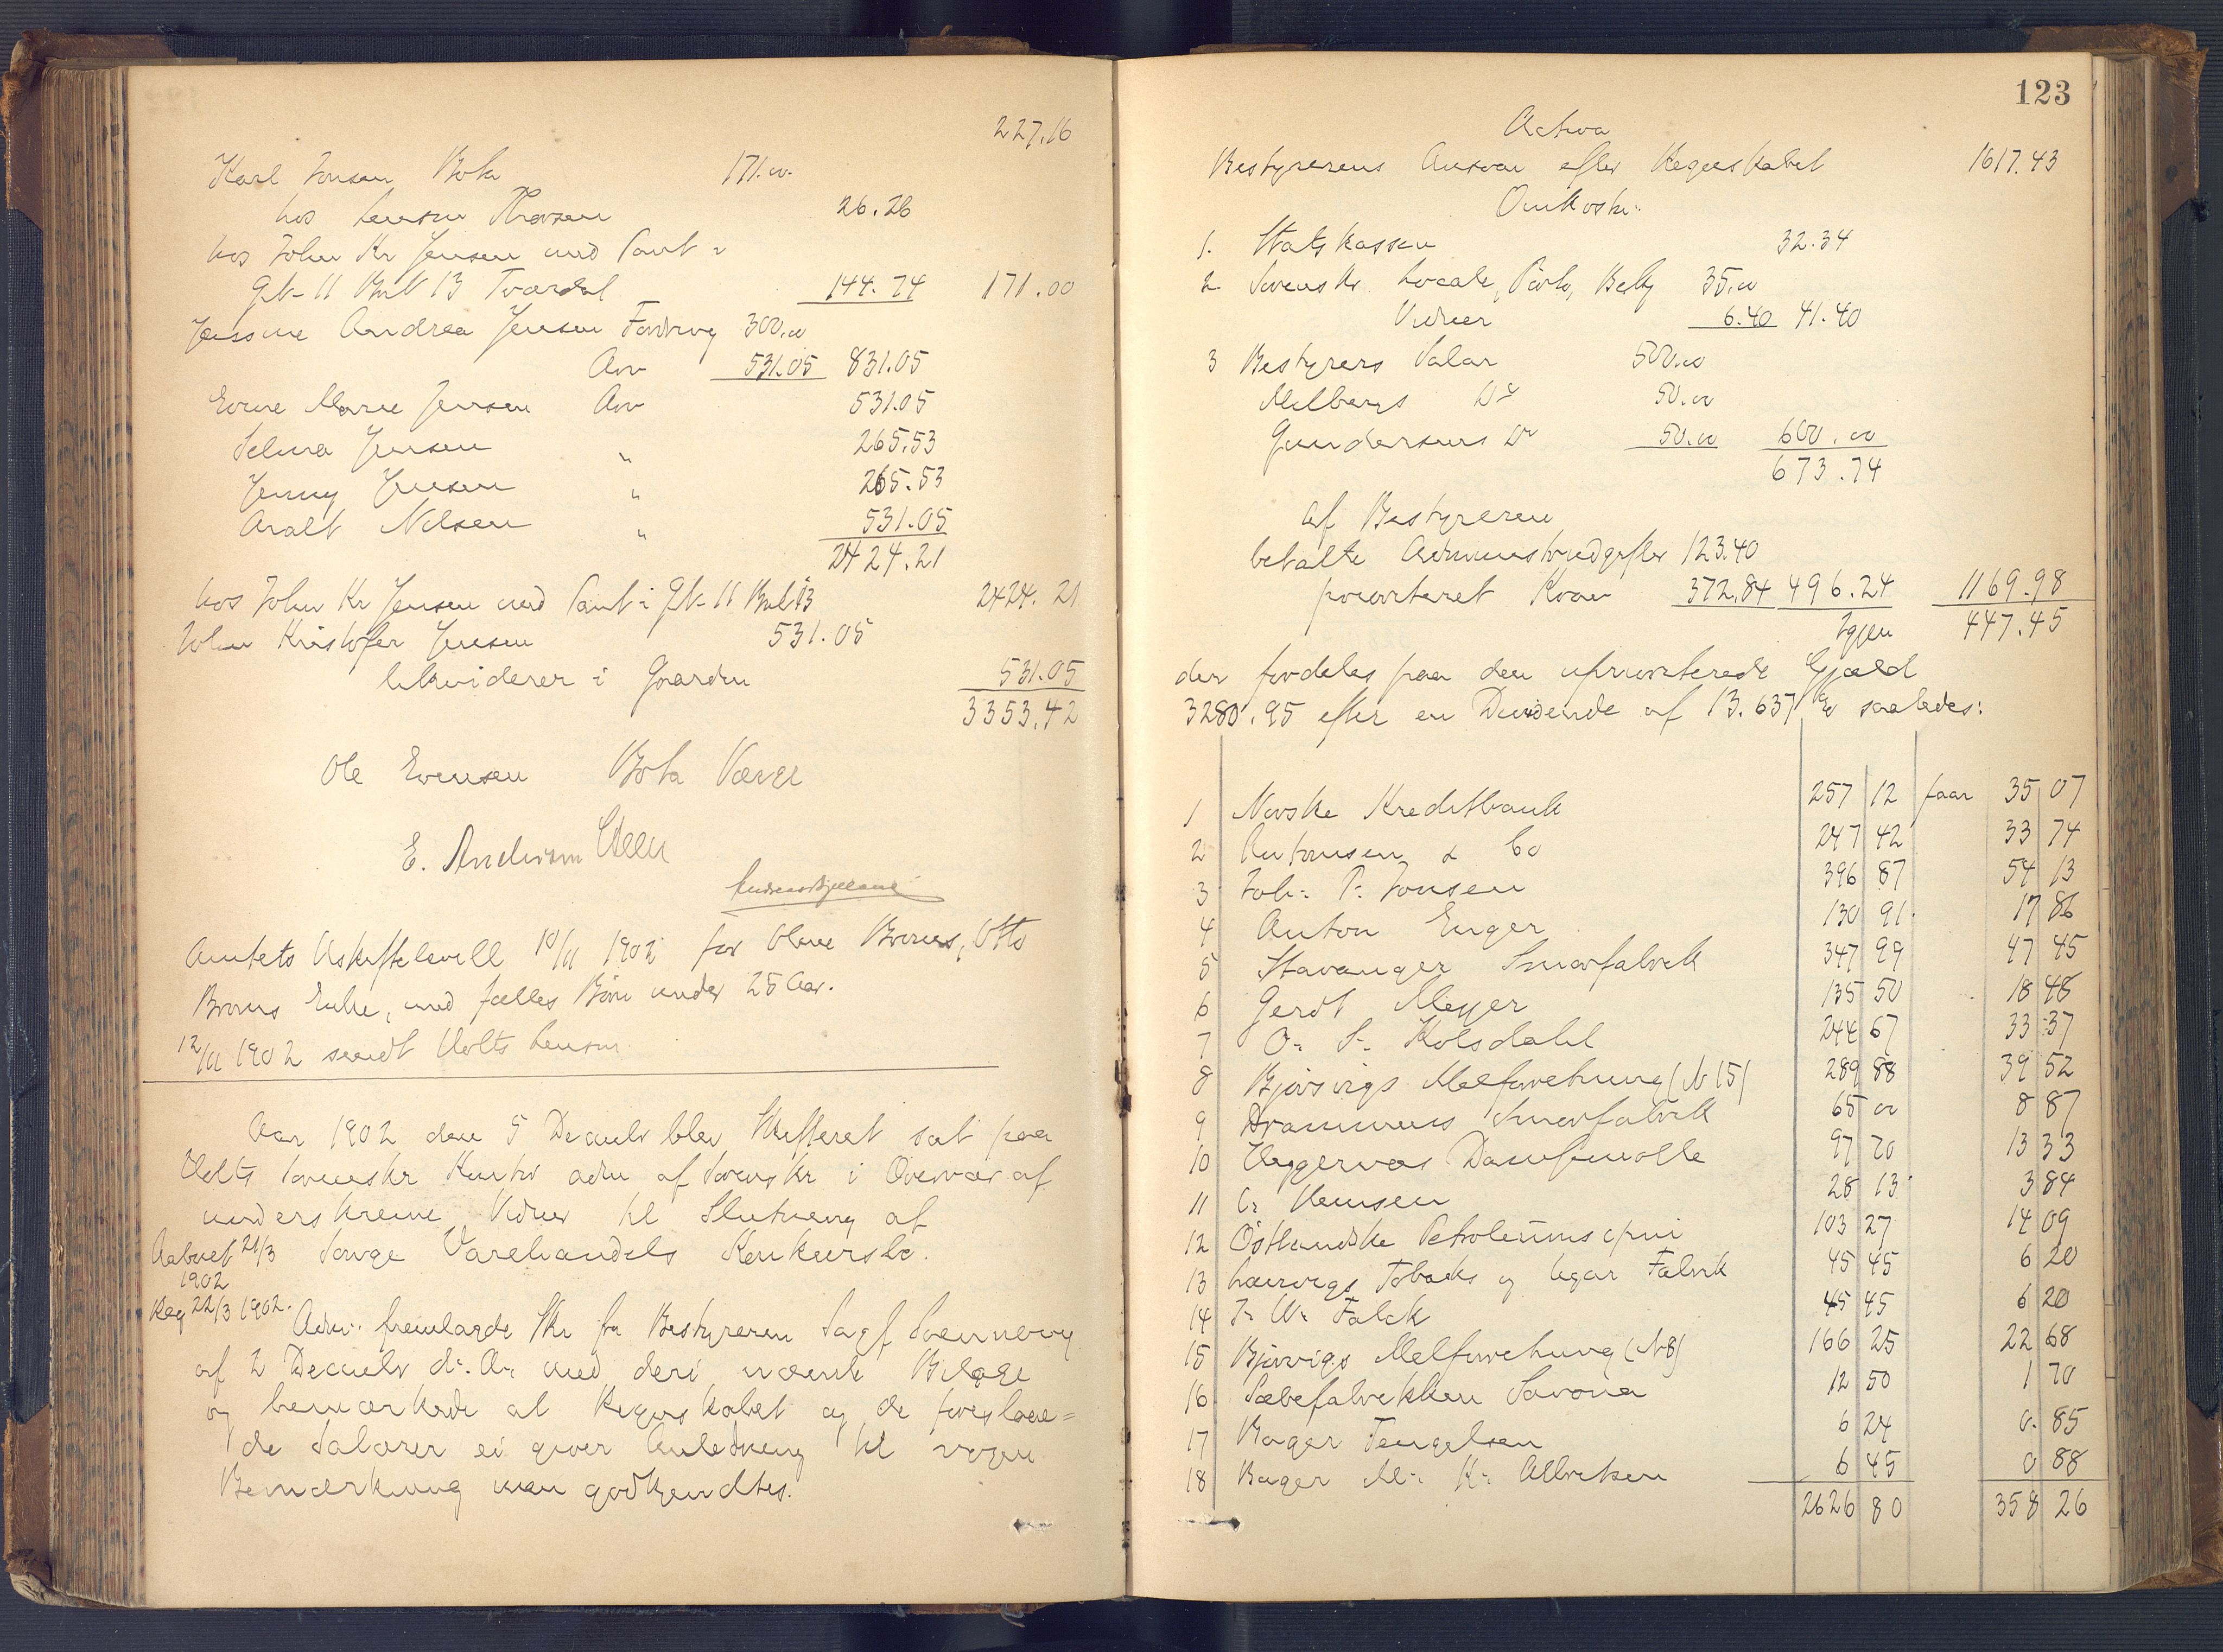 227.16
Karl Jonsen Bota 171.00
hos Lensm Thorsen 26.26
hos John Kr Jensen med Pant i
Gb 11 Bnb 13 Tværdal 144.74 171.00
Jensine Andrea Jensen Fordring 300.00
Arv 531.05 831.05
Evine Marie Jensen Arv 531.05
Selma Jensen " 265.53
Jenny Jensen " 265.53
Aralt Nilsen " 531.05
2424.21
hos John Kr Jensen med Pant i Gb 11 Bnb 13 2424.21
John Kristofer Jensen 531.05
likviderer i Gaarden 531.05
3353.42
Ole Evensen Bota Værge
E. Andersen
Amtets Uskiftebevill 10/11 1902 for Oline Broms, Otto
Broms Enke, med fælles Børn under 25 Aar.
12/11 1902 sendt Holts Lensm
Aar 1902 den 5 Decembr blev Skifteret sat paa
Holts Sorenskr Kontor adm af Sorenskr i Overvær af
underskrevne Vidner til Slutning af
Aabnet 21/3 Songe Varehandels Konkursbo.
1902
Reg 22/3 1902.
Adm. fremlagde Skr fra Bestyreren Sagf Svenneby
af 2 Decembr d. A. med deri nævnte Bilage
og bemærkede at Regnskabet og de foreslaae=
de Salærer ei giver Anledning til nogen
Bemærkning men godkjendtes.
123
Activa
Bestyrerens Ansvar efter Regnskabet 1617.43
Omkostn:
1. Statskassen 32.34
2 Sorenskr. Locale, Porto, Bekj 35.00
Vidner 6.40 41.40
3 Bestyrers Salær 500.00
Melbergs Do 50.00
Gundersens Do 50.00 600.00
673.74
af Bestyreren
betalte Administrudgifter 123.40
prioriteret Krav 372.84 496.24 1169.98
Igjen 447.45
der fordeles paa den uprioriterede Gjæld
3280.95 efter en Dividende af 13.637 % saaledes:
1 Norske Kreditbank 257 12 faar 35 07
2 Antonsen & Co 247 42 33 74
3 Joh. P. Jonsen 396 87 54 13
4 Anton Enger 130 91 17 86
5 Stavanger Smørfabrik 347 99 47 45
6 Gerdt Meyer 135 50 18 48
7 O. S. Kolsdahl 244 67 33 37
8 Bjørsvigs Melforretning (N 15) 289 88 39 52
9 Drammens Smørfabrik 65 00 8 87
10 Dampmølle 97 70 13 33
11 C. Hemsen 28 13 3 84
12 Östlandske Petroleumscpni 103 27 14 09
13 Laurvigs Tobaks og Cigar Fabrik 45 45 6 20
14 J. W. Falck 45 45 6 20
15 Bjørsvigs Melforretning (N 8) 166 25 22 68
16 Sæbefabrikken Savona 12 50 1 70
17 Bager Tengelsen 6 24 0. 85
18 Bager M. K. Albretsen 6 45 0 88
2626 80 358 26